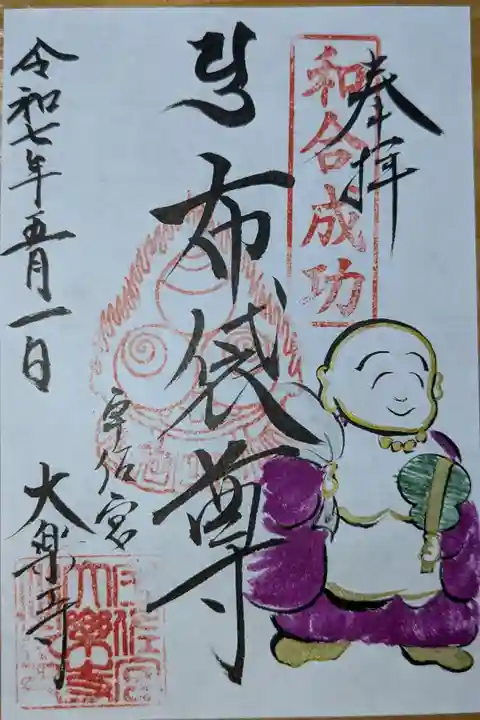 奉拝
和合成功
布袋尊
宇佐宮
大楽寺
令和七年五月一日
大樂寺